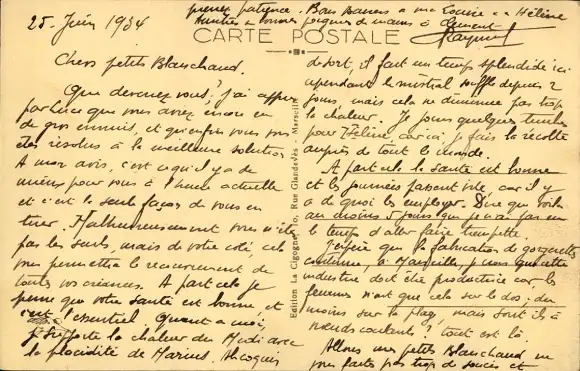 prenez patience. Bons Baisers à ma Louise et à Hélène
et bonnes poignées de mains à Clément
Raymond
CARTE POSTALE
25 Juin 1934
Chers petits Blanchaud.
Que devenez vous? j'ai appris
par Luce que vous avez encore eu
de gros ennuis, et qu'enfin vous vous
êtes résolus à la meilleure solution
A mon avis, c'est ce qu'il y a de
mieux pour vous à l'heure actuelle
et c'est la seule façon de vous en
tirer. Malheureusement vous n'êtes
pas les seuls, mais de votre côté cela
peu permettre le recouvrement de
toutes vos créances. A part cela je
pense que votre santé est bonne, et
c'est l'essentiel. Quant à moi,
je supporte la chaleur du Midi avec
la placidité de Marius.
Edition La Cigogne, 10, Rue Glandevès - Marseille
de sort, il fait un temps splendide ici
cependant le mistral souffle depuis 2
jours, mais cela ne diminue pas trop
la chaleur. Je joins quelques timbres
pour Hélène, car ici, je fais la récolte
auprès de tout le monde.
A part cela la santé est bonne
et les journées passent vite, car il y
a de quoi les employer. Dire que voilà
au moins 5 jours que je n'ai pas eu
le temps d'aller faire trempette.
J'espère que la fabrication de gorgettes
continue, à Marseille, je crois que cette
industrie doit être productive car les
femmes n'ont que cela sur le dos; du
moins sur la plage, mais sont ils à
nœuds coulants? tout est là.
Allons mes petits Blanchaud ne
vous faites pas trop de soucis et